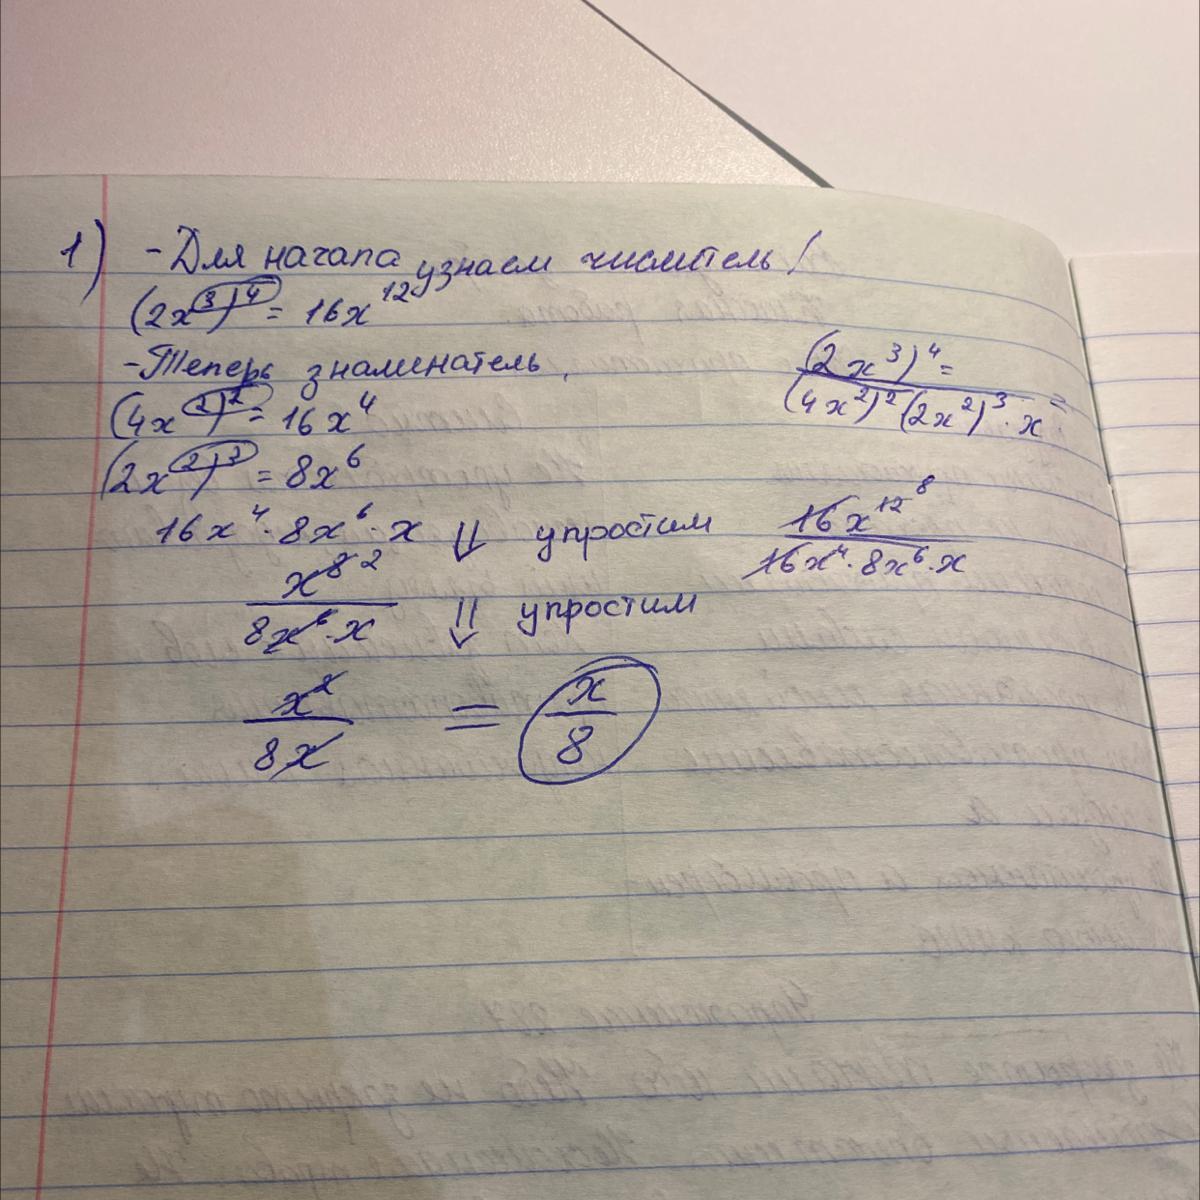 1) - Для начала узнаем числитель /
(2x³)⁴ = 16x¹²
- Теперь знаминатель,
(4x²)² = 16x⁴
(2x²)³ = 8x⁶
16x⁴ · 8x⁶ · x ⇓ упростим
x⁸ ²
8x⁶ · x ⇓ упростим
x²
8x
= x
8
(2x³)⁴ =
(4x²)² (2x²)³ · x =
16x¹² ⁸
16x⁴ · 8x⁶ · x